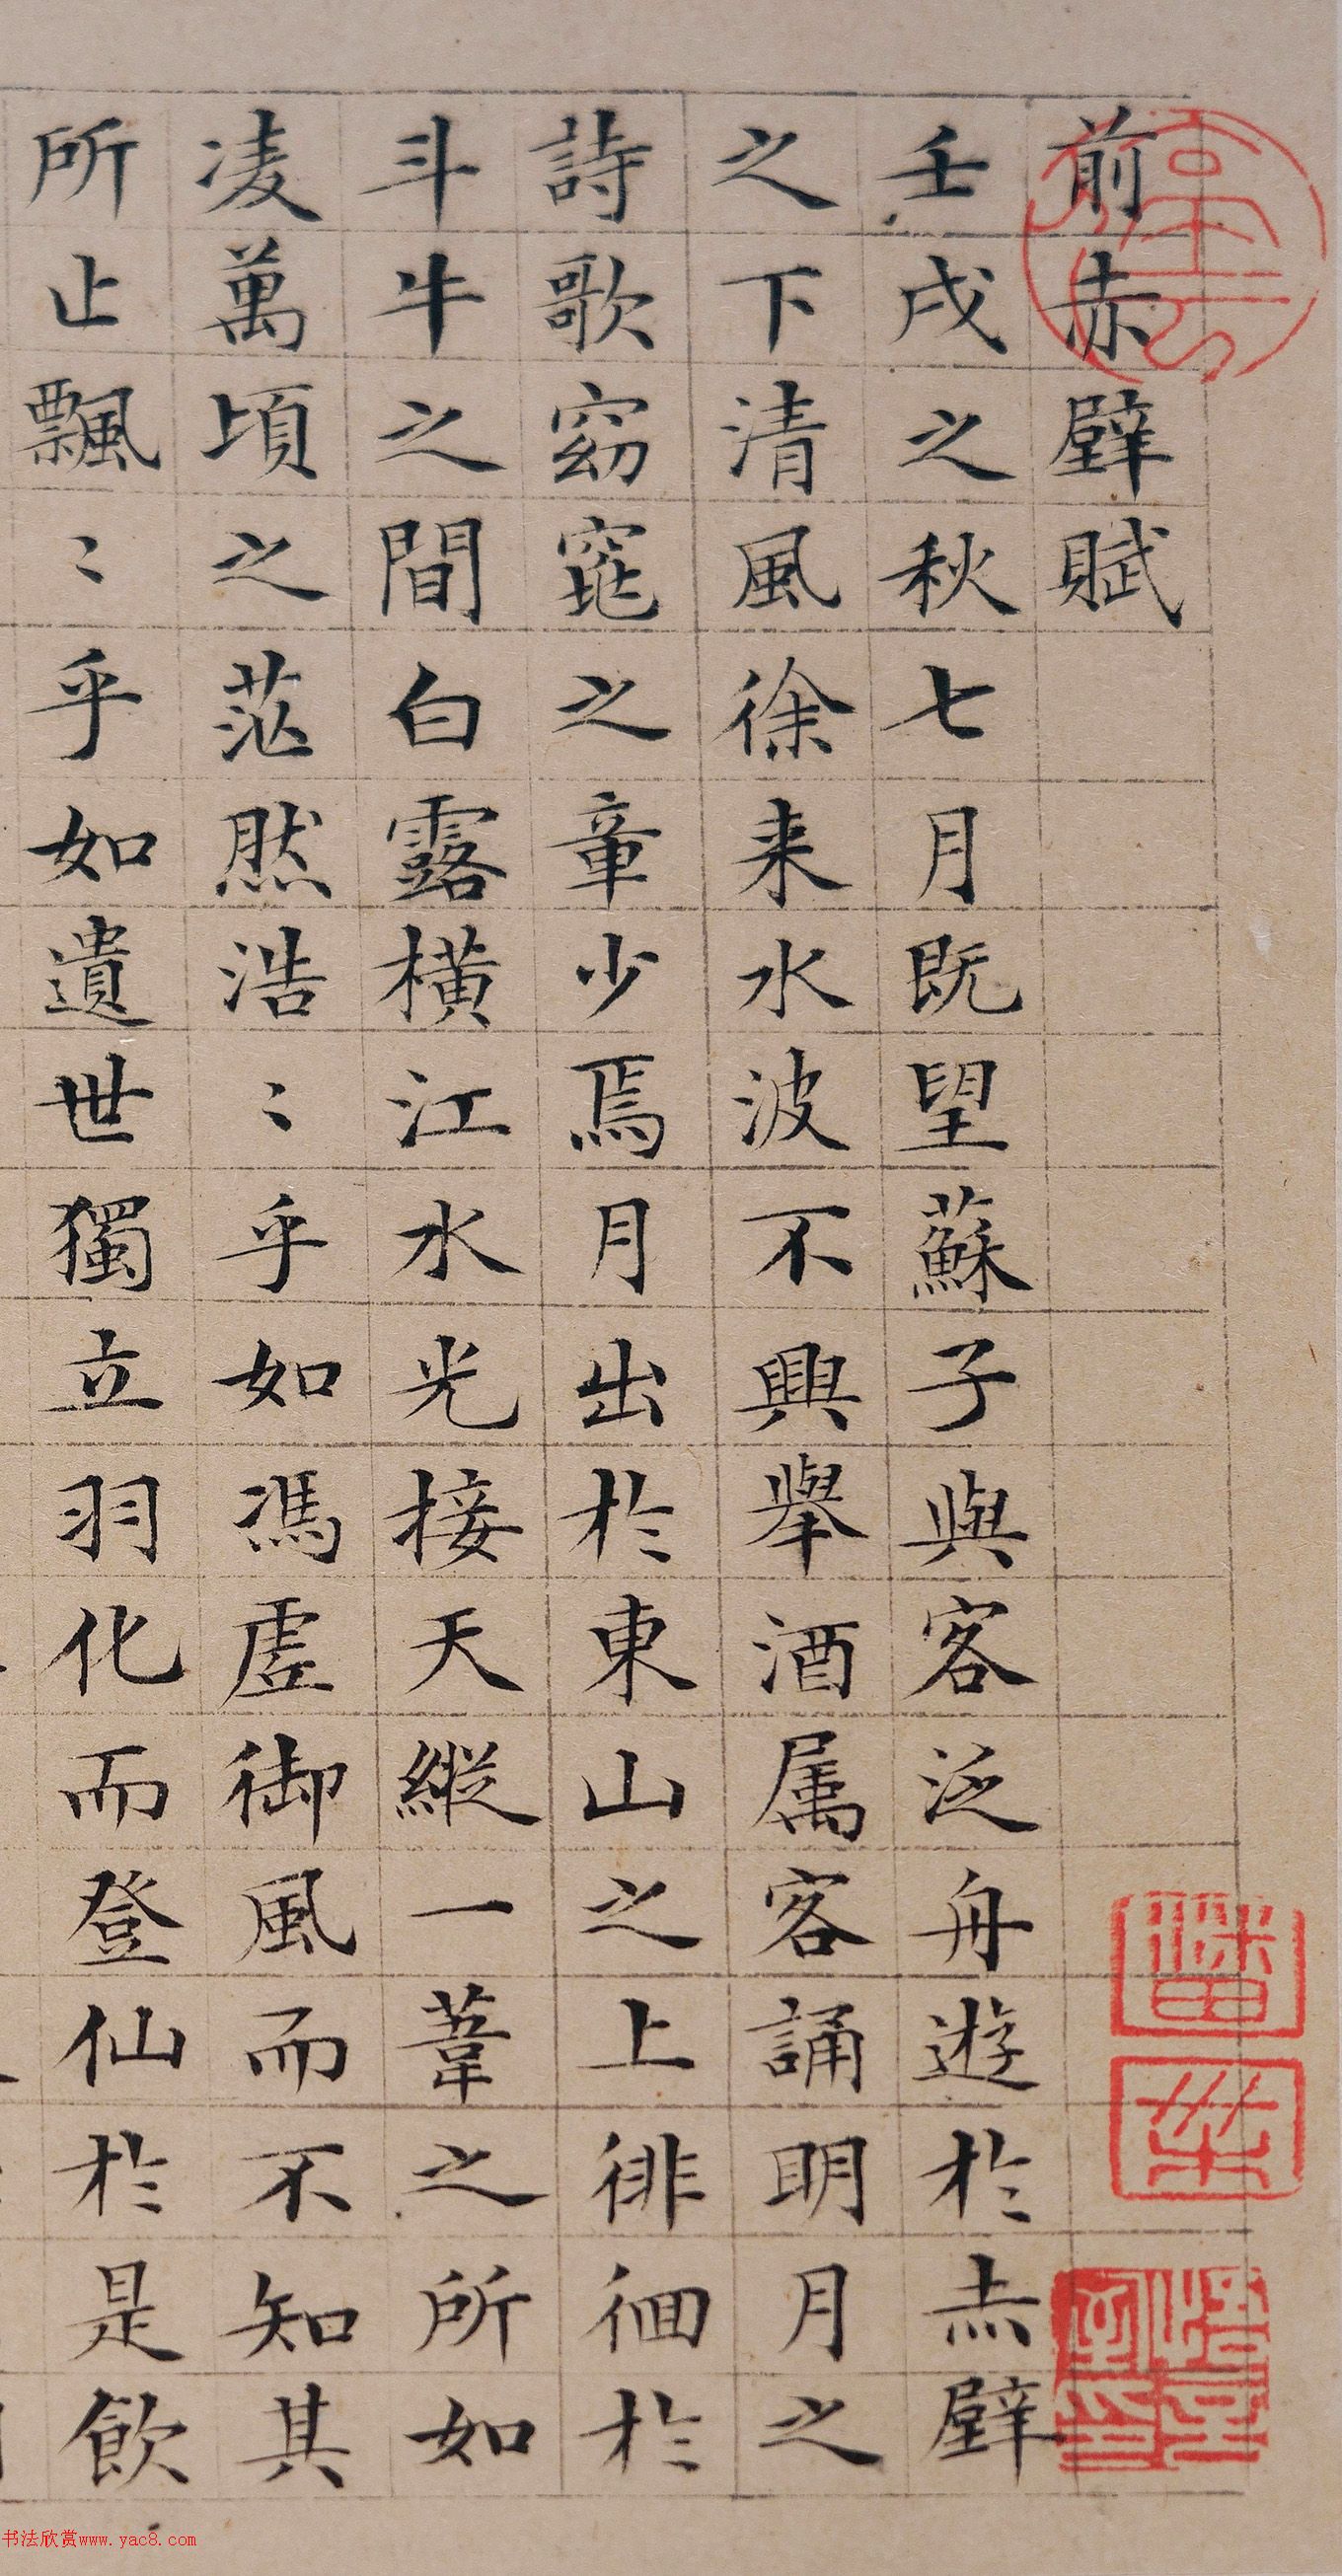 前赤壁賦
壬戌之秋七月既望蘇子與客泛舟遊於赤壁
之下清風徐来水波不興舉酒属客誦明月之
詩歌窈窕之章少焉月出於東山之上徘徊於
斗牛之間白露橫江水光接天縱一葦之所如
凌萬頃之茫然浩〻乎如馮虛御風而不知其
所止飄〻乎如遺世獨立羽化而登仙於是飲
书法欣赏www.yac8.com